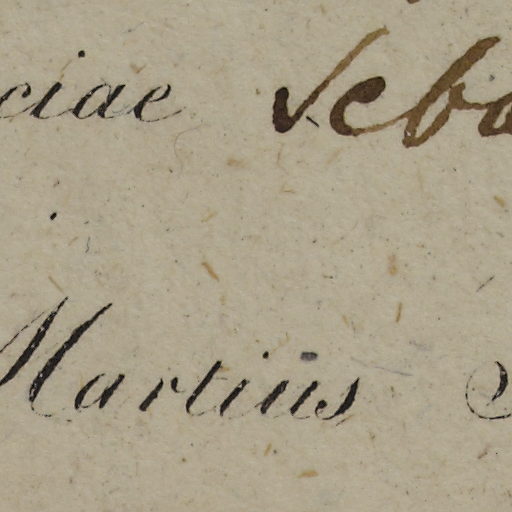 ciae Seba
Martius S